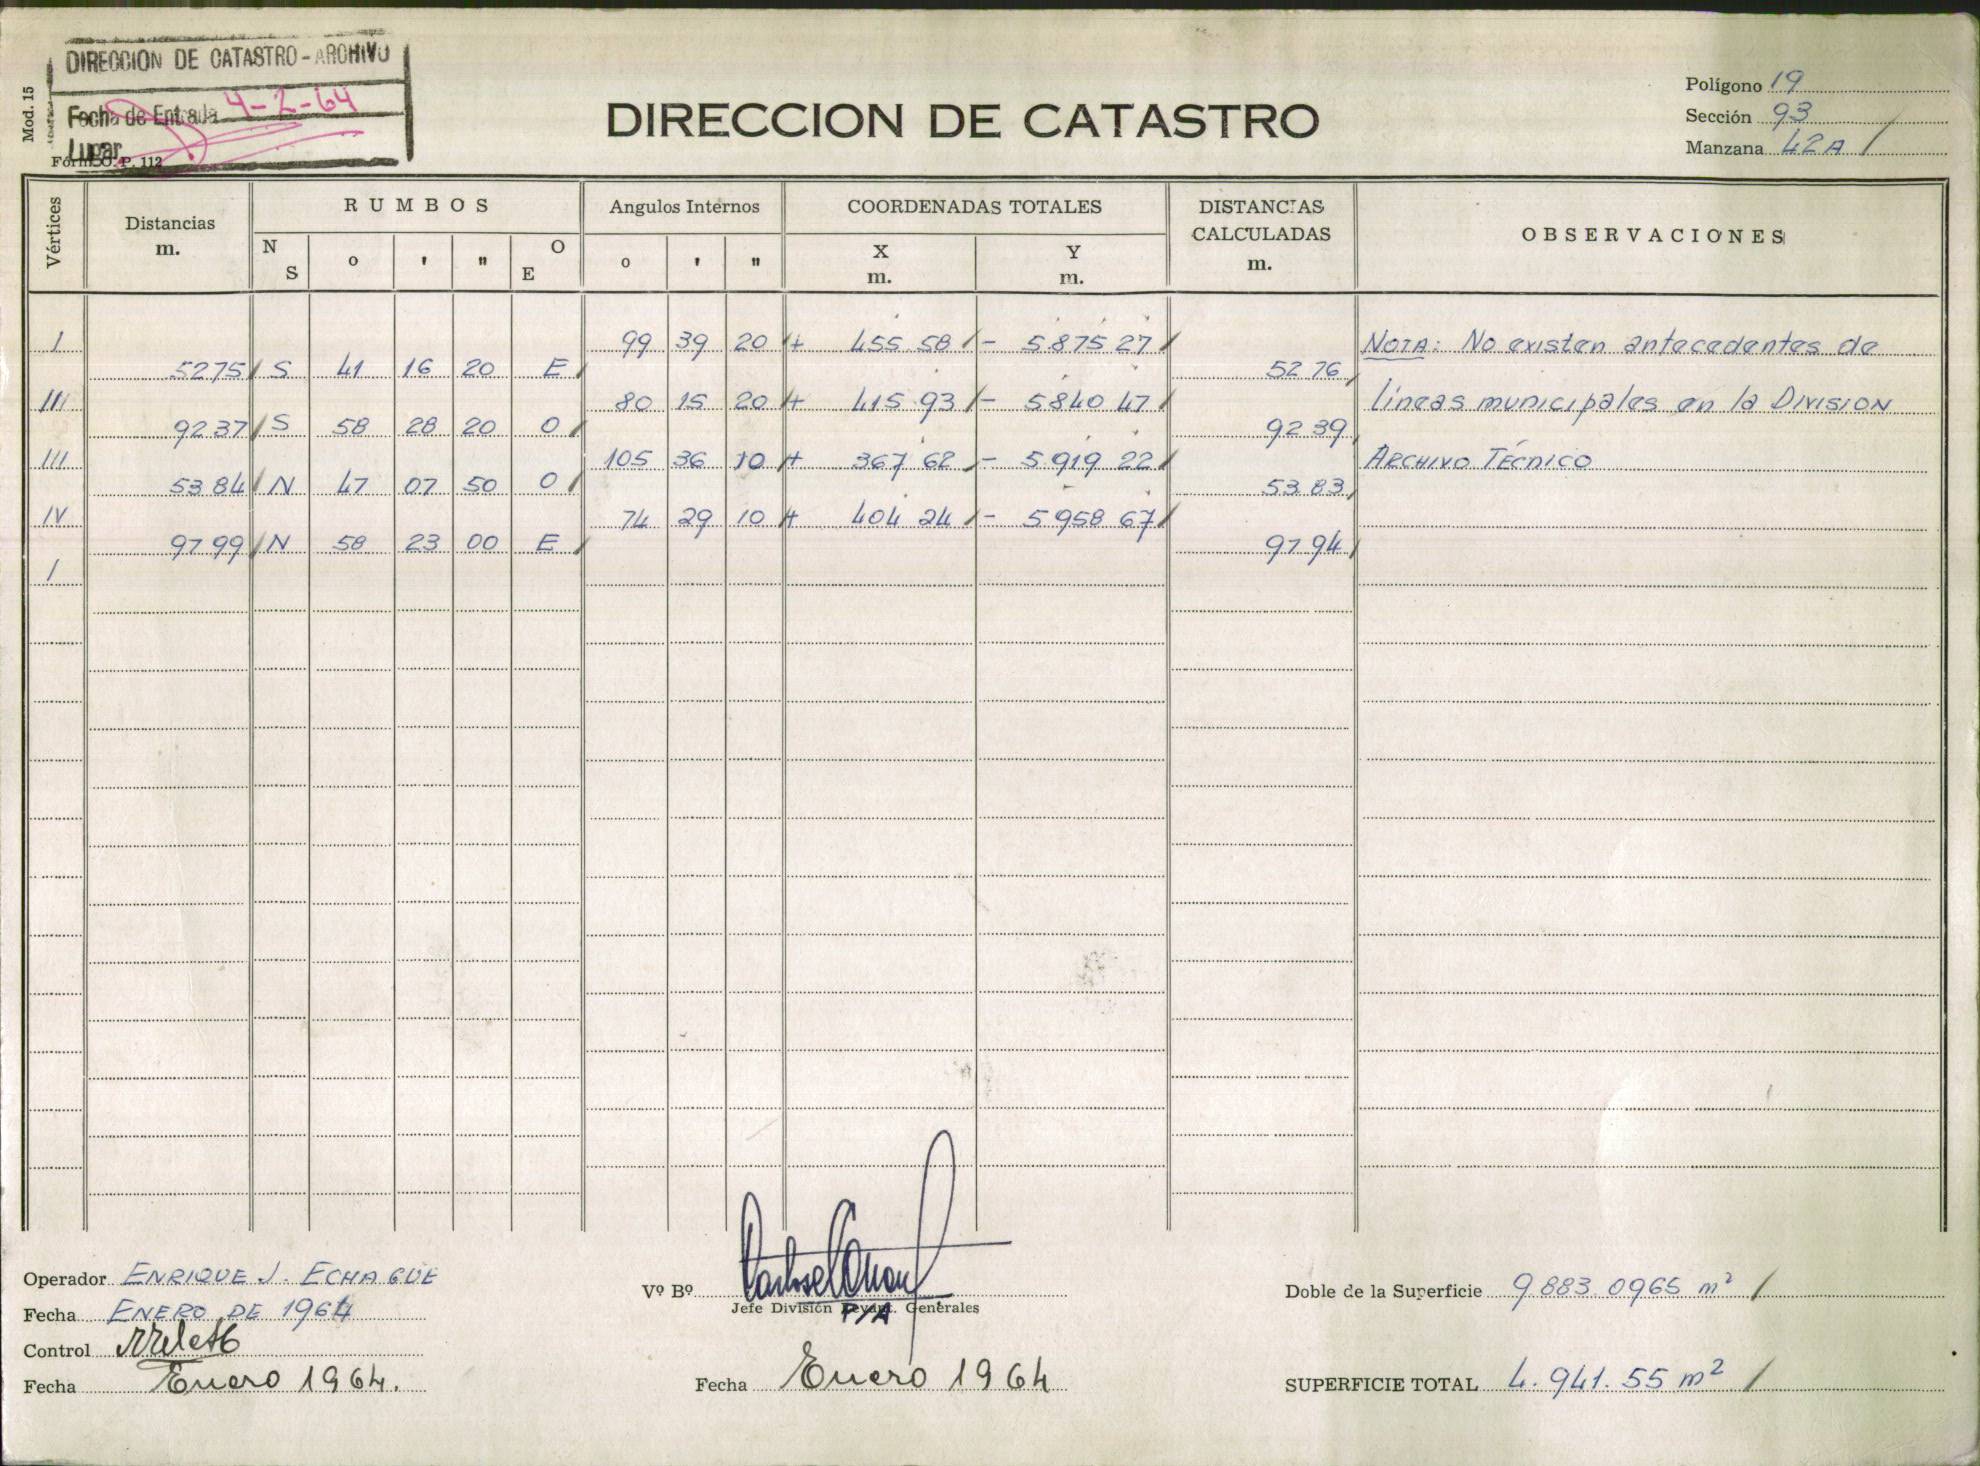 DIRECCION DE CATASTRO - ARCHIVO
Fecha de Entrada 4-2-64
Lugar
Mod. 15
Form. O. P. 112
DIRECCION DE CATASTRO
Polígono 19
Sección 93
Manzana 42A /
Vértices
Distancias m.
RUMBOS
N S ° ' " O E
Angulos Internos
° ' "
COORDENADAS TOTALES
X m. Y m.
DISTANCIAS CALCULADAS m.
OBSERVACIONES
I 99 39 20 + 455 58 / - 5.875 27 / NOTA: No existen antecedentes de
52 75 / S 41 16 20 E / 52 76 /
III 80 15 20 + 415 93 / - 5.840 47 / líneas municipales en la DIVISION
92 37 / S 58 28 20 O / 92 39 /
III 105 36 10 + 367 62 / - 5.919 22 / ARCHIVO TÉCNICO
53 84 / N 47 07 50 O / 53 83 /
IV 74 29 10 + 404 24 / - 5.958 67 /
97 99 / N 58 23 00 E / 97 94 /
I
Operador ENRIQUE J. ECHAGÜE
Fecha ENERO DE 1964
Control
Fecha Enero 1964.
Vº Bº
Jefe División Levant. Generales
P/A
Fecha Enero 1964
Doble de la Superficie 9.883.0965 m² /
SUPERFICIE TOTAL 4.941.55 m² /